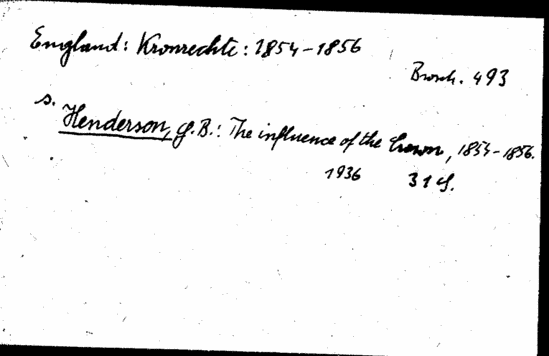 England: Kronrechte: 1854-1856
Brosch. 493
s. Henderson, G.B.: The influence of the Crown, 1854-1856.
1936 31 S.